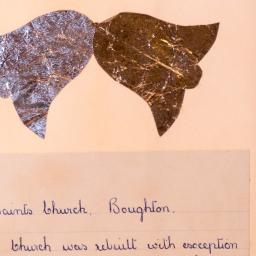 saints Church, Boughton.
Church was rebuilt with exception